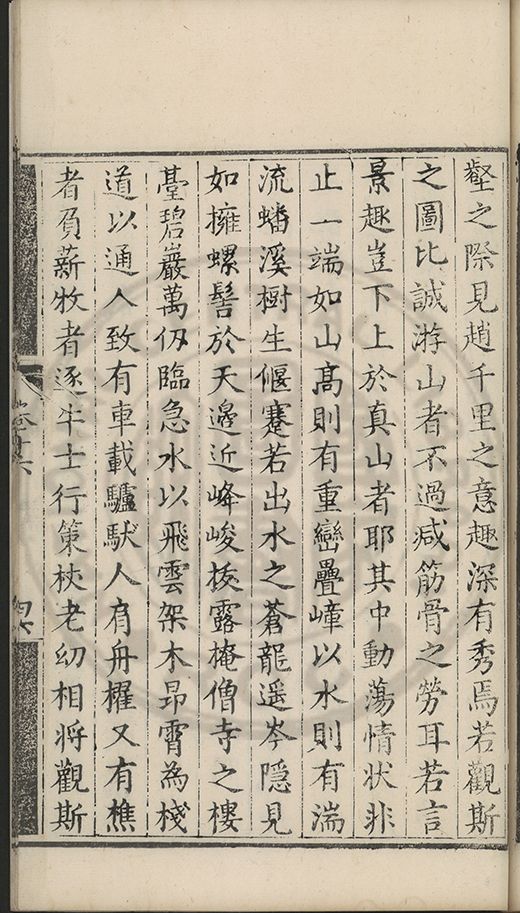 壑之際見趙千里之意趣深有秀焉若觀斯
之圖比誠游山者不過減筋骨之勞耳若言
景趣豈下上於真山者耶其中動蕩情狀非
止一端如山高則有重巒疊嶂以水則有湍
流蟠溪樹生偃蹇若出水之蒼龍遥岑隱見
如擁螺髻於天邊近峰峻拔露掩僧寺之樓
臺碧巖萬仭臨急水以飛雲架木昻霄為棧
道以通人致有車載驢馱人肩舟櫂又有樵
者負薪牧者逐牛士行策杖老㓜相將觀斯
卷十六
四六